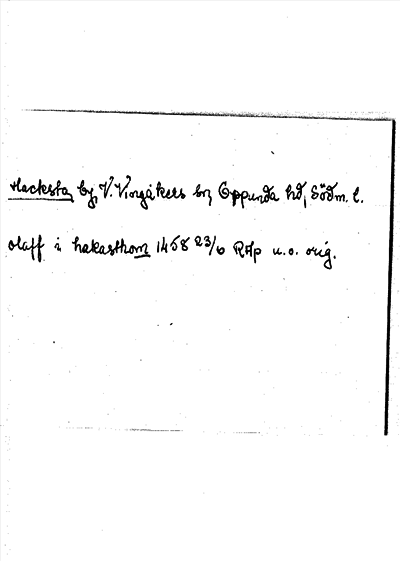 Hacksta by, V. Vingåkers sn, Oppunda hd, Södm. l.
olaff i hakasthom 1458 23/6 RAp u.o. orig.